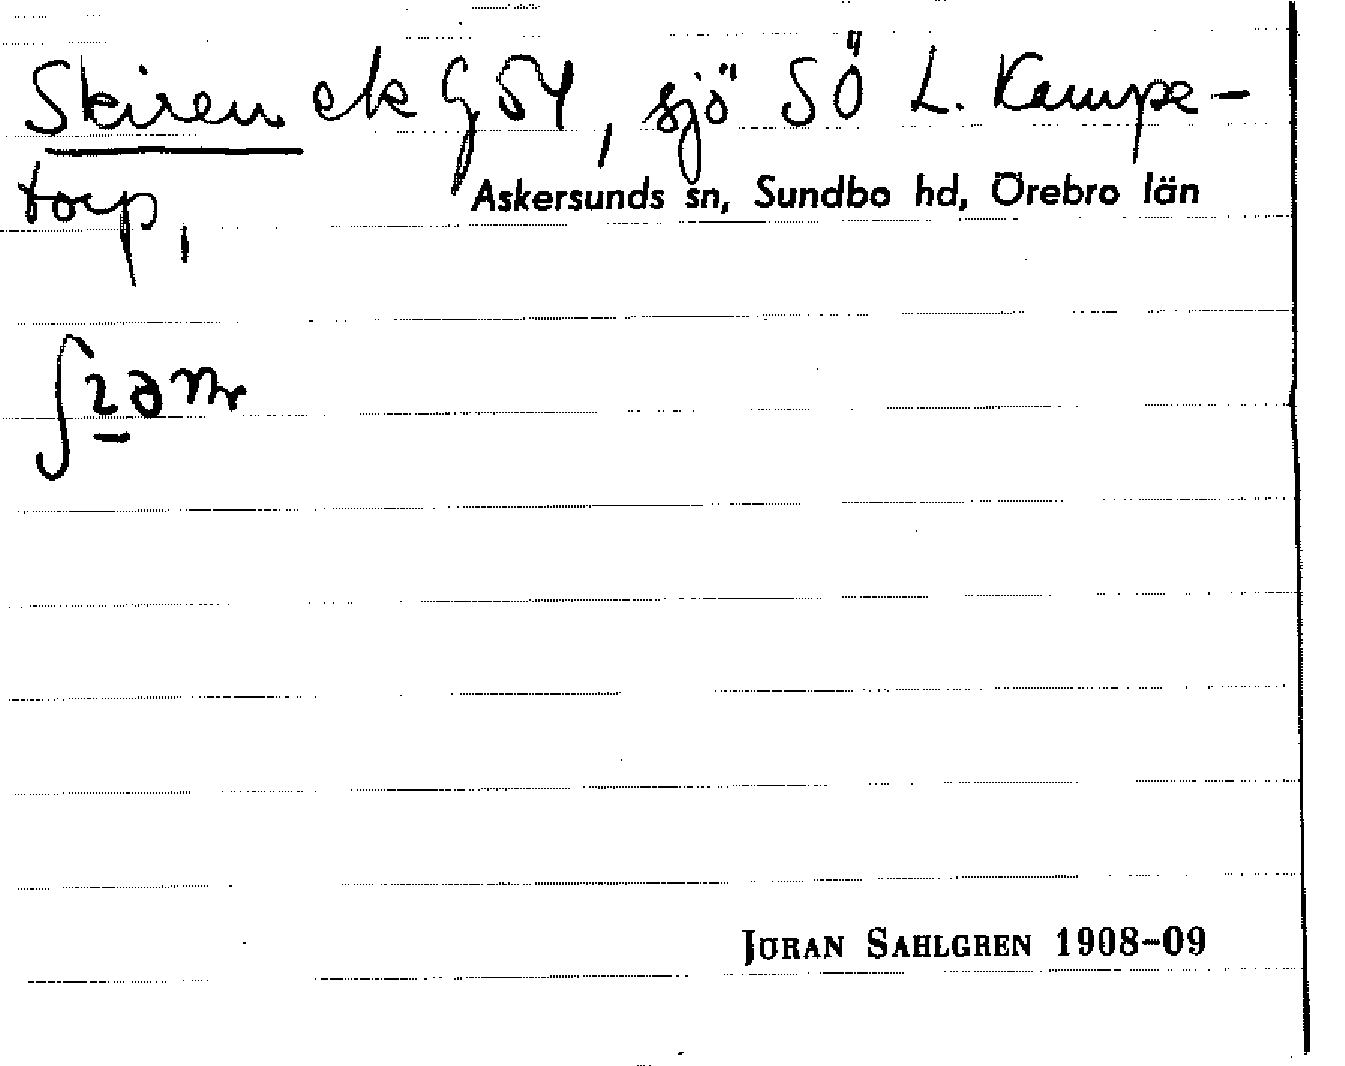 Skiren ek G 54, sjö SÖ L. Kampe-
torp,
Askersunds sn, Sundbo hd, Örebro län
JÖRAN SAHLGREN 1908-09